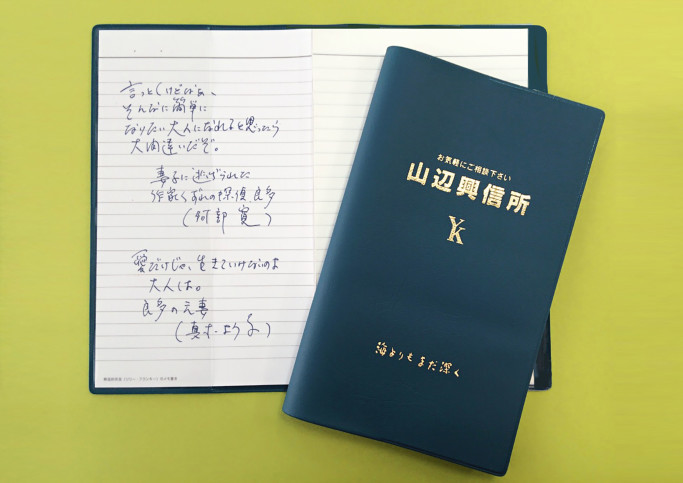 言っとくけどなあ、
そんなに簡単に
なりたい大人になれると思ったら
大間違いだぞ。
妻子に逃げられた
作家くずれの探偵 良多
(阿部 寛)
愛だけじゃ、生きていけないのよ
大人は。
良多の元妻
(真木よう子)
お気軽にご相談下さい
山辺興信所
YK
海よりもまだ深く